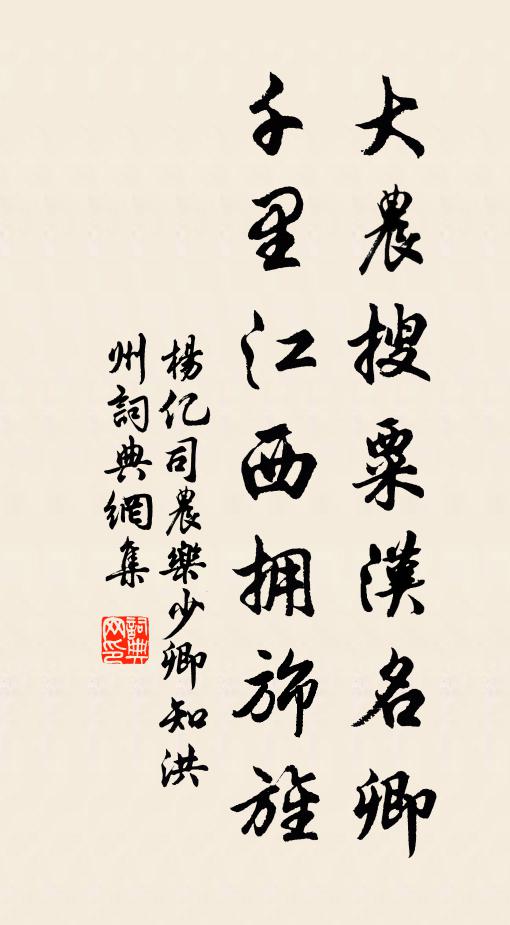 大農搜粟漢名卿
千里江西拥旆旌
楊亿司農樂少卿知洪
州詞典網集
詞典网印